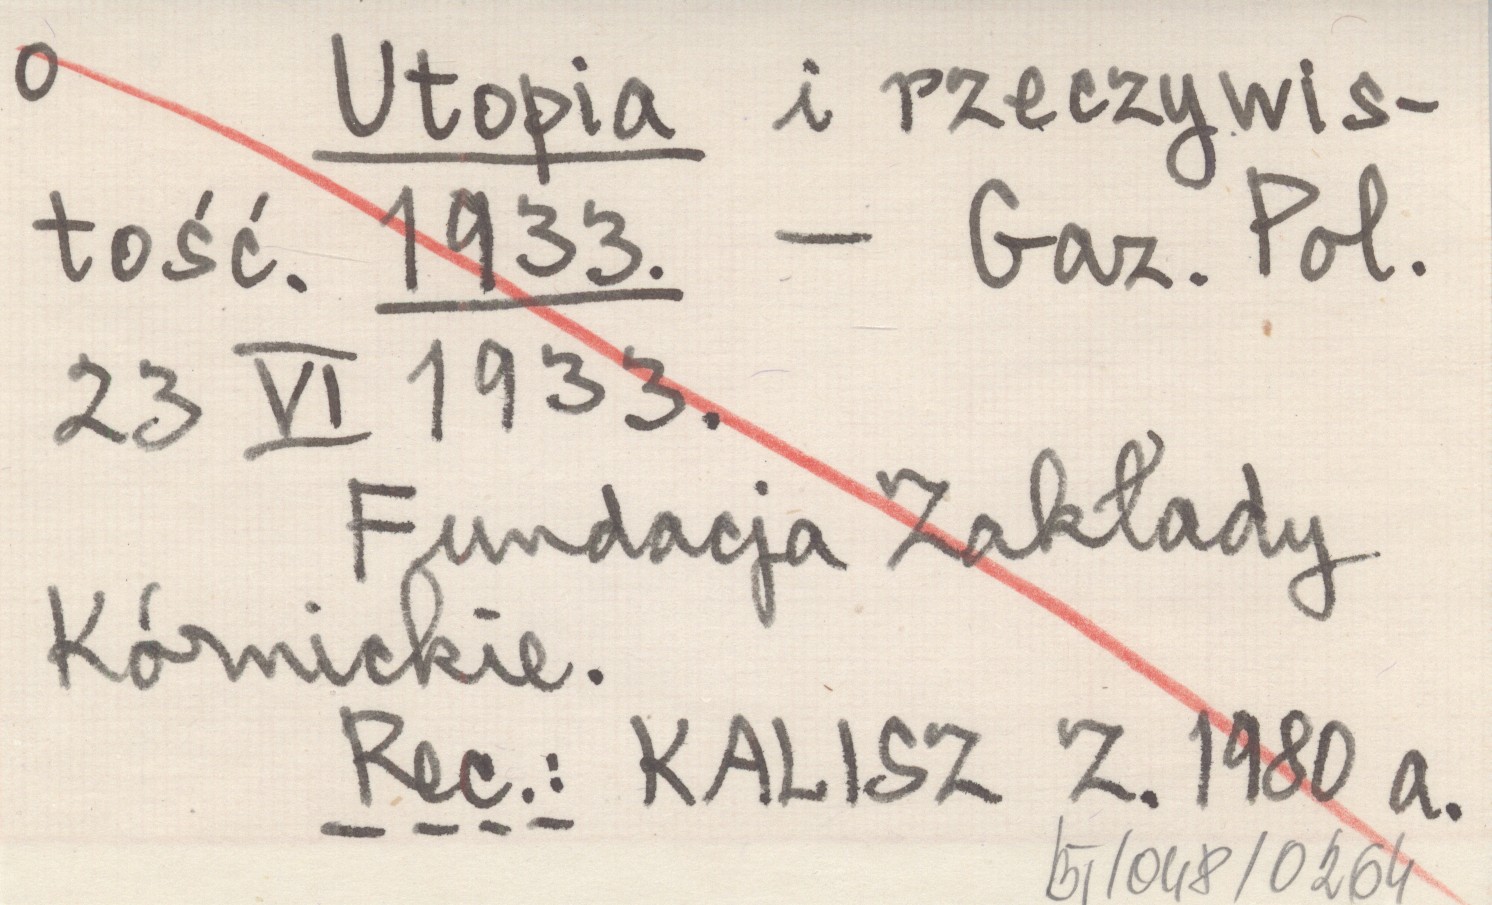 o Utopia i rzeczywis-
tość. 1933. – Gaz. Pol.
23 VI 1933.
Fundacja Zakłady
Kórnickie.
Rec.: KALISZ Z. 1980 a.
51/048/0264